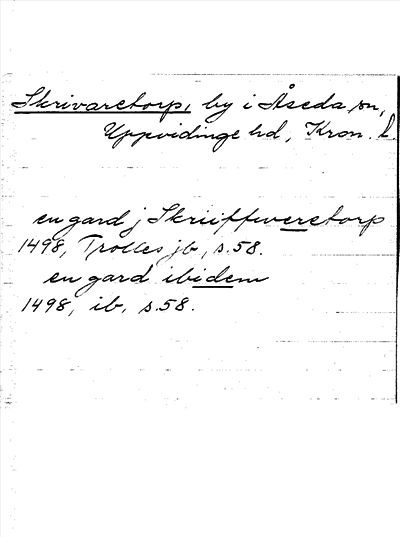 Skrivaretorp, by i Åseda sn,
Uppvidinge hd, Kron. l.
en gard j Skriiffweretorp
1498, Trolles jb, s. 58.
en gard ibidem
1498, ib, s. 58.